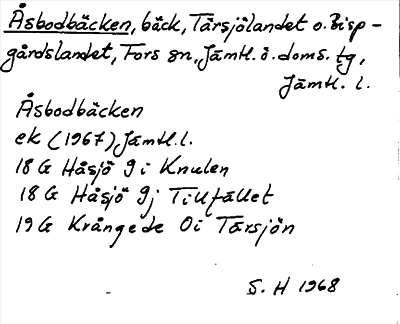 Åsbodbäcken, bäck, Tärsjölandet o. Bisp-
gårdslandet, Fors sn, Jämtl. ö. doms. tg,
Jämtl. l.
Åsbodbäcken
ek (1967) Jämtl. l.
18 G Håsjö 9 i Knulen
18 G Håsjö 9j Tillfället
19 G Krångede 0i Tärsjön
S. H 1968